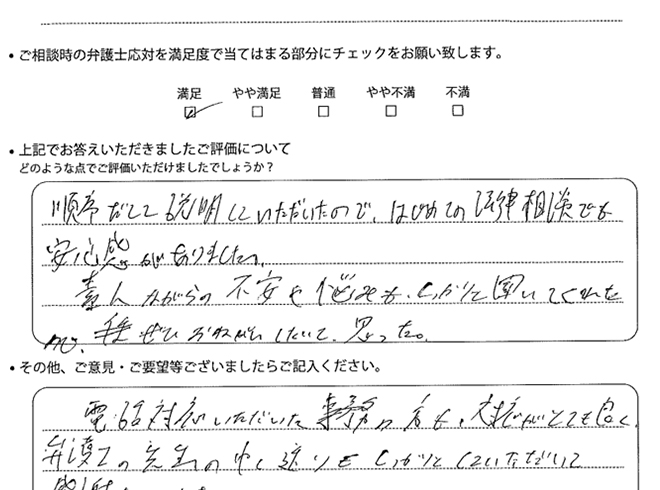 • ご相談時の弁護士応対を満足度で当てはまる部分にチェックをお願い致します。
満足 やや満足 普通 やや不満 不満
• 上記でお答えいただきましたご評価について
どのような点でご評価いただけましたでしょうか？
順序だてて説明していただいたので、はじめての法律相談でも
安心感がありました。
素人ながらの不安や悩みも、しっかりと聞いてくれた
ので、ぜひおねがいしたいと思った。
• その他、ご意見・ご要望等ございましたらご記入ください。
電話対応いただいた事務の方も、対応がとても良く
弁護士の先生の申し送りもしっかりとしていただいて